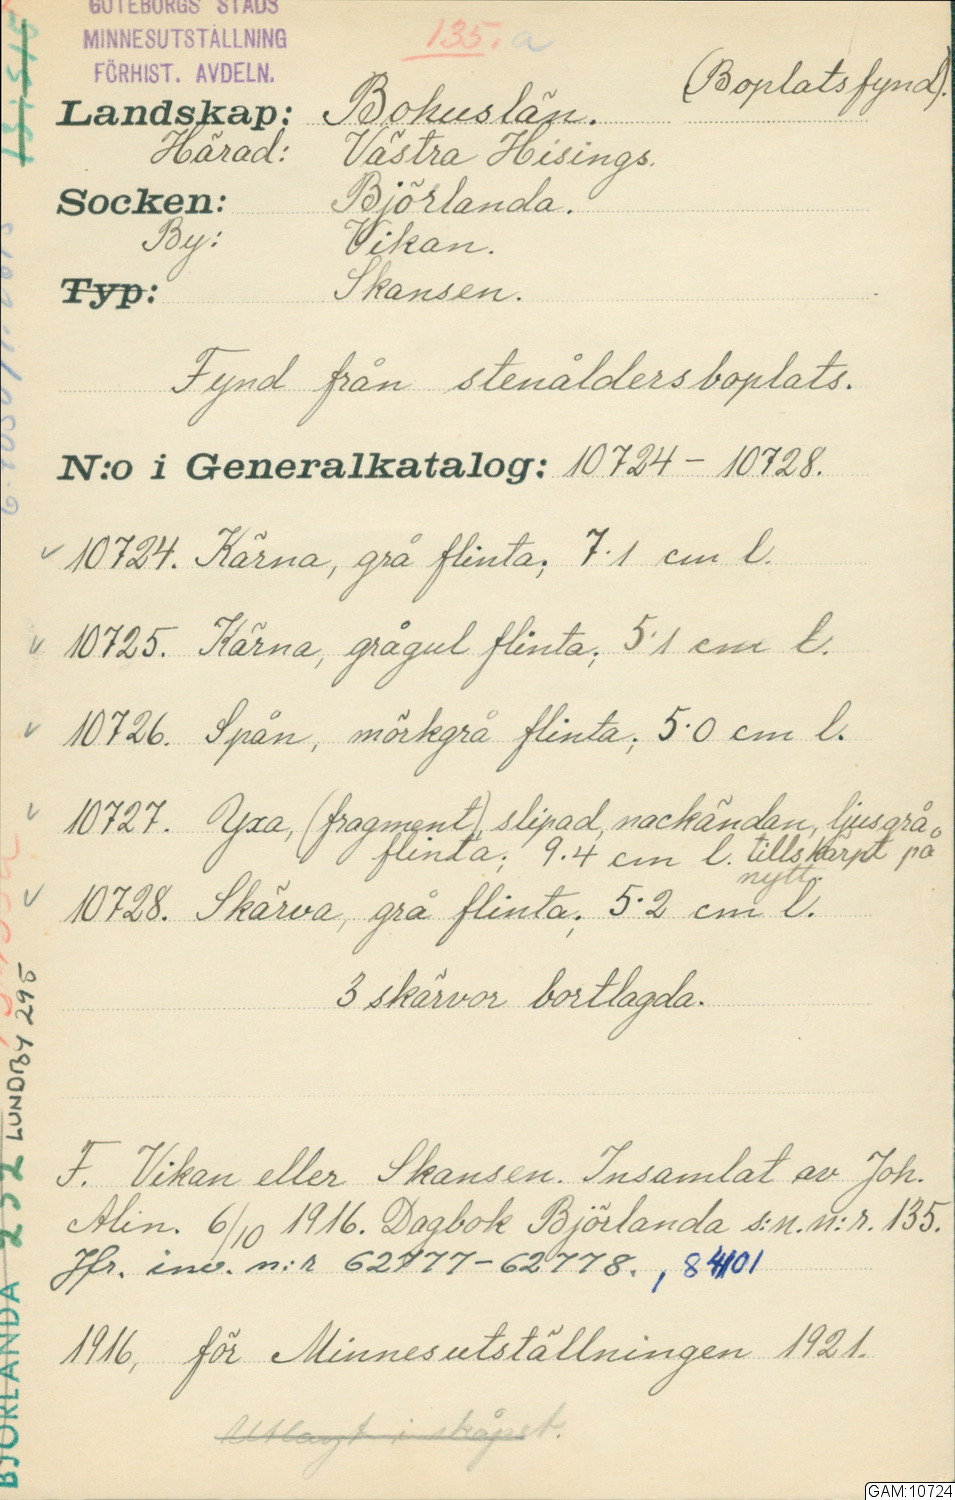 GÖTEBORGS STADS
MINNESUTSTÄLLNING
FÖRHIST. AVDELN.
135. a
(Boplatsfynd).
Landskap: Bohuslän.
Härad: Västra Hisings.
Socken: Björlanda.
By: Vikan.
Typ: Skansen.
Fynd från stenåldersboplats.
N:o i Generalkatalog: 10724 – 10728.
10724. Kärna, grå flinta; 7.1 cm l.
10725. Kärna, grågul flinta; 5.1 cm l.
10726. Spån, mörkgrå flinta; 5.0 cm l.
10727. Yxa, (fragment), slipad, nackändan, ljusgrå
flinta; 9.4 cm l. tillskärpt på
nytt.
10728. Skärva, grå flinta; 5.2 cm l.
3 skärvor bortlagda.
F. Vikan eller Skansen. Insamlat av Joh.
Alin. 6/10 1916. Dagbok Björlanda s:n. n:r. 135.
Jfr. inv. n:r 62777–62778. , 84101
1916, för Minnesutställningen 1921.
Utlagt i skåpet.
BJÖRLANDA 232 LUNDBY 295
GAM:10724